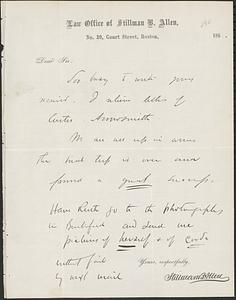 Law Office of Stillman B. Allen,
No. 39, Court Street, Boston,
186
Dear Sir.
Too busy to write you
I return letter of
Curtis Arrowsmith
We are all up in arms
The last trip is over and
found a great success.
Have Ruth go to the photographer
in Bradford and send me
pictures of herself & of Cora
without fail
by next mail
Yours, respectfully,
Stillman B Allen